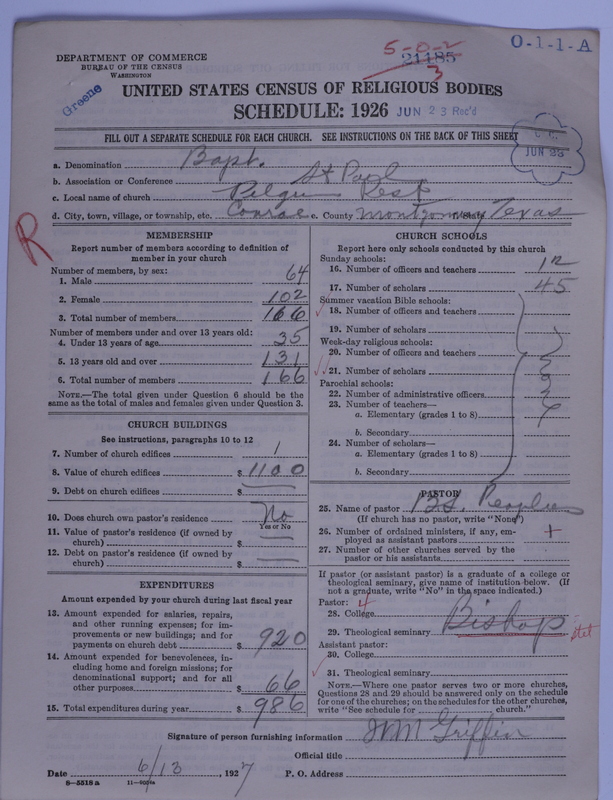 5-0-2
O-1-1-A
21185
3
DEPARTMENT OF COMMERCE
BUREAU OF THE CENSUS
WASHINGTON
Greene
UNITED STATES CENSUS OF RELIGIOUS BODIES
SCHEDULE: 1926 JUN 23 Rec'd
FILL OUT A SEPARATE SCHEDULE FOR EACH CHURCH. SEE INSTRUCTIONS ON THE BACK OF THIS SHEET
JUN 23
a. Denomination Bapt.
b. Association or Conference St Paul
c. Local name of church Pilgrim Rest
d. City, town, village, or township, etc. Conroe e. County Montgomery f. State Texas
R
MEMBERSHIP
Report number of members according to definition of
member in your church
Number of members, by sex:
1. Male 64
2. Female 102
3. Total number of members 166
Number of members under and over 13 years old:
4. Under 13 years of age 35
5. 13 years old and over 131
6. Total number of members 166
NOTE.—The total given under Question 6 should be
same as the total of males and females given under Question 3.
CHURCH BUILDINGS
See instructions, paragraphs 10 to 12
7. Number of church edifices 1
8. Value of church edifices $ 1100
9. Debt on church edifices $
10. Does church own pastor's residence No
Yes or No
11. Value of pastor's residence (if owned by
church) $
12. Debt on pastor's residence (if owned by
church) $
EXPENDITURES
Amount expended by your church during last fiscal year
13. Amount expended for salaries, repairs,
and other running expenses; for im-
provements or new buildings; and for
payments on church debt $ 920
14. Amount expended for benevolences, in-
cluding home and foreign missions; for
denominational support; and for all
other purposes $ 66
15. Total expenditures during year $ 986
CHURCH SCHOOLS
Report here only schools conducted by this church
Sunday schools:
16. Number of officers and teachers 12
17. Number of scholars 45
Summer vacation Bible schools:
18. Number of officers and teachers
19. Number of scholars
Week-day religious schools:
20. Number of officers and teachers
21. Number of scholars
Parochial schools:
22. Number of administrative officers
23. Number of teachers—
a. Elementary (grades 1 to 8)
b. Secondary
24. Number of scholars—
a. Elementary (grades 1 to 8)
b. Secondary
PASTOR
25. Name of pastor
(If church has no pastor, write "None")
26. Number of ordained ministers, if any, em-
ployed as assistant pastors
27. Number of other churches served by the
pastor or his assistants
If pastor (or assistant pastor) is a graduate of a college or
theological seminary, give name of institution below. (If
not a graduate, write "No" in the space indicated.)
Pastor: 4
28. College
29. Theological seminary Bishop stet
Assistant pastor:
30. College
31. Theological seminary
NOTE.—Where one pastor serves two or more churches,
Questions 28 and 29 should be answered only on the schedule
for one of the churches; on the schedules for the other churches,
write "See schedule for church."
Signature of person furnishing information Wm Griffin
Official title
Date 6/13, 1927 P. O. Address
8-5518a